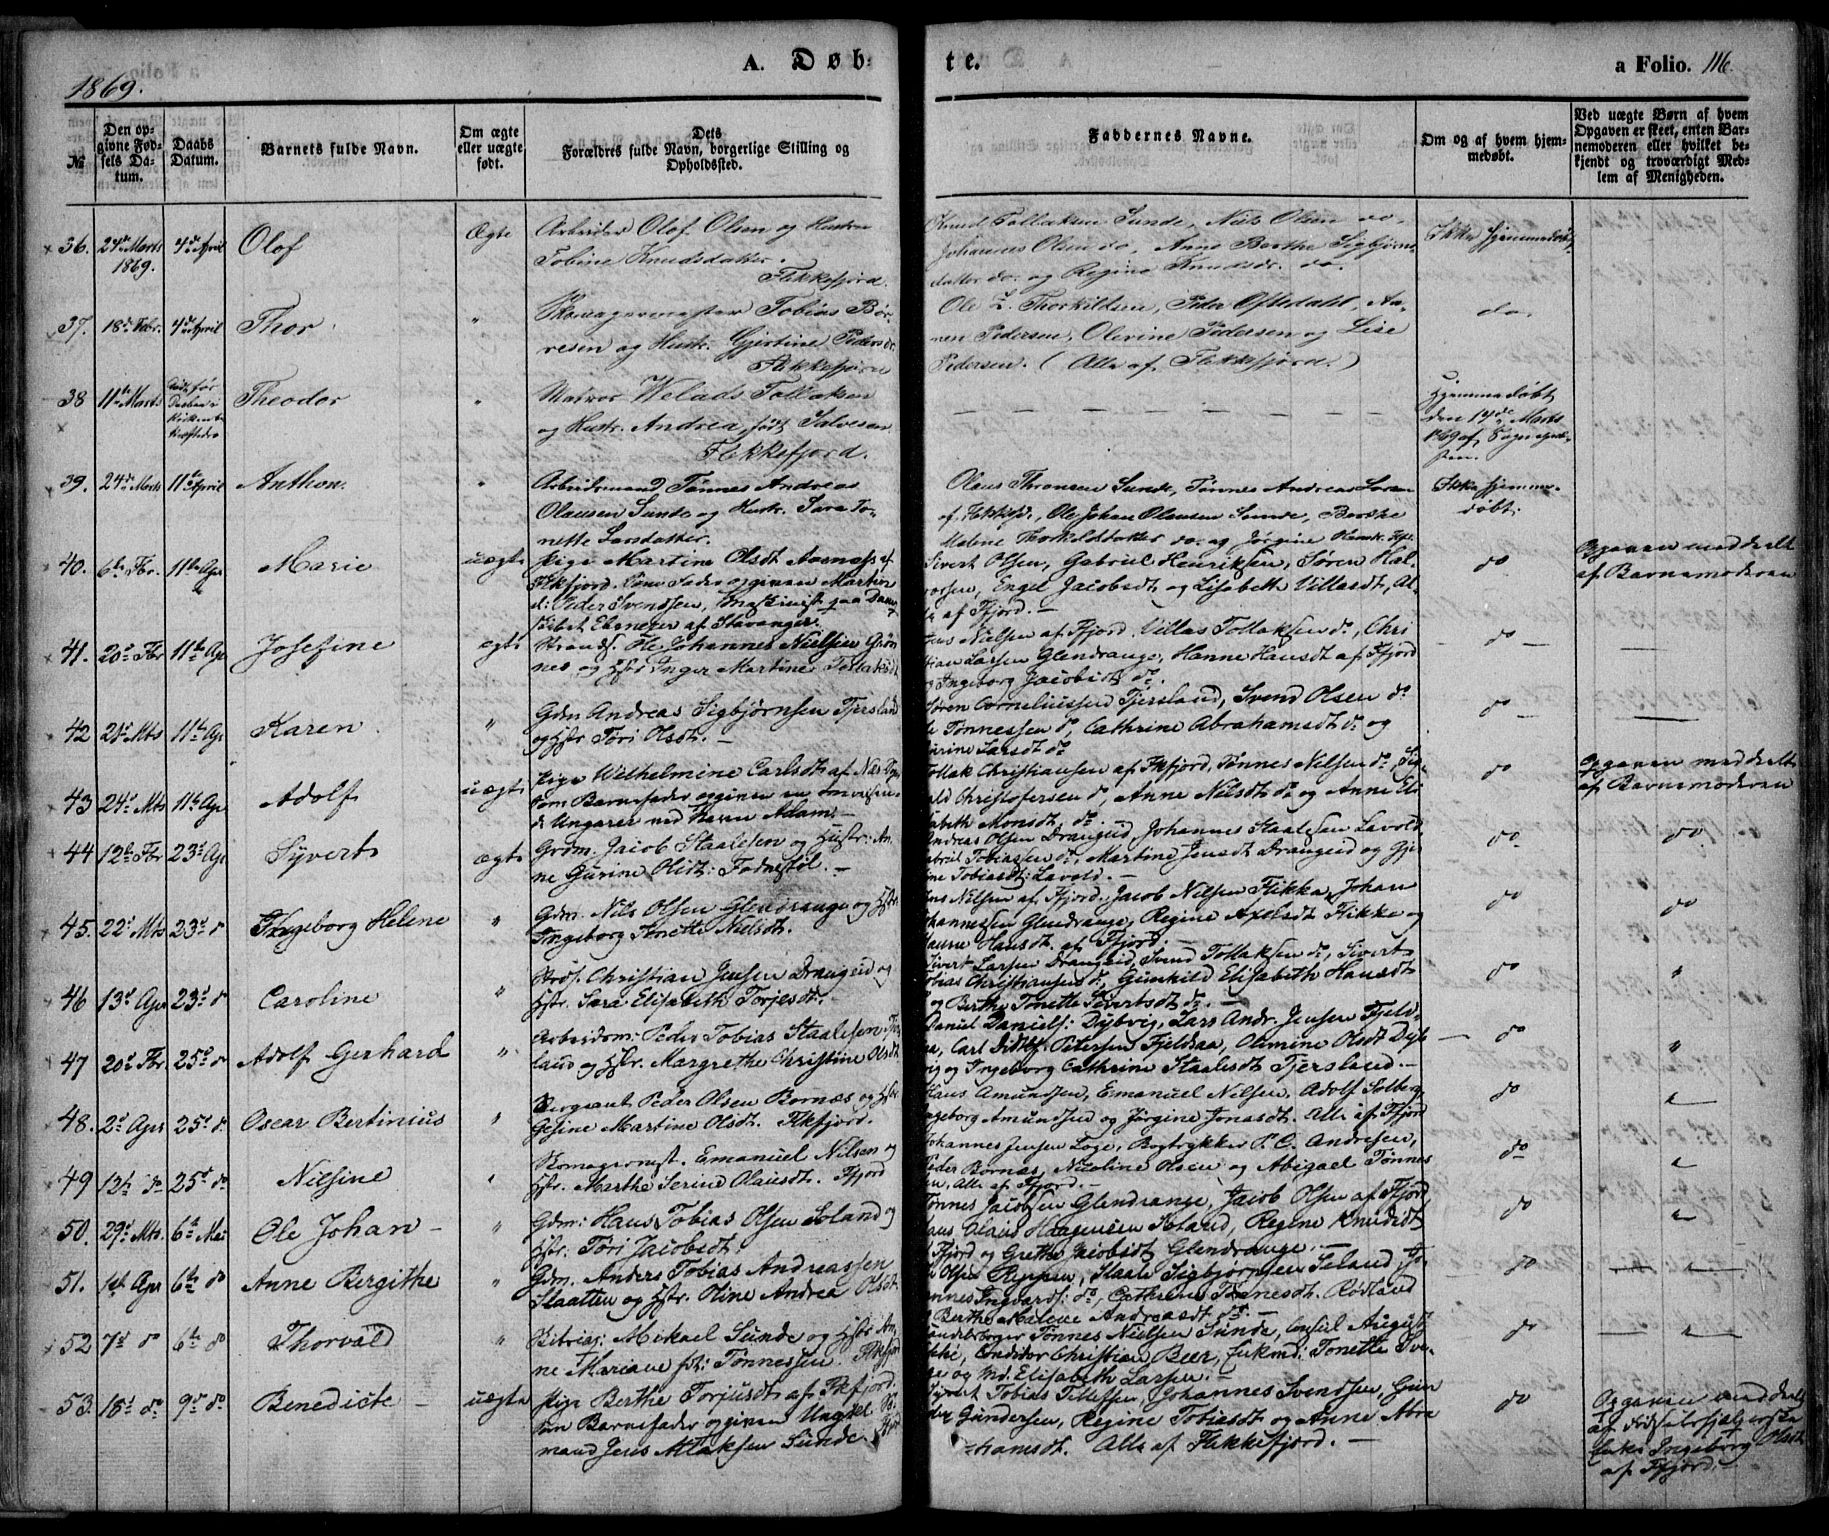 1869.
A. Døb-
te.
a Folio. 116.
№
Den op-
givne Fød-
sels Da-
tum.
Daabs
Datum.
Barnets fulde Navn.
Om ægte
eller uægte
født.
Dets
Forældres fulde Navn, borgerlige Stilling og
Opholdssted.
Faddernes Navne.
Om og af hvem hjem-
medøbt.
Ved uægte Børn af hvem
Opgaven er skeet, enten Bar-
nemoderen eller hvilket be-
kjendt og troværdigt Med-
lem af Menigheden.
36. 24de Marts 4de April Olof Ægte Arbeider Olof Olsen og Hustru
1869.
Tobine Knudsdatter.
Flekkefjord.
Knud Tollaksen Sunde, Niels Olsen do,
Johannes Olsen do, Anne Berthe Sigbjørns-
datter do. og Regine Knudsdr. do.
Ikke hjemmedøbt
37. 18de Febr. 4de April Thor " Skomagermester Tobias Bør-
resen og Hustr. Gjertine Pedersdr.
Flekkefjord
Ole Z. Thorkildsen, Peder Oftedahl, An-
nen Pedersen, Olevine Pedersen og Lise
Pedersen. (Alle af Flekkefjord.)
do.
38 11te Marts Theodor " Matros Welads Tollaksen
og Hustr. Andrea, født Salvesen
Flekkefjord.
død før
Daaben i
Kirken be-
kræftedes
Hjemmedøbt
den 14de Marts
1869 af Sognepræ-
sten.
39. 24de Marts 11te April Anthon. " Arbeidsmand Tønnes Andreas
Olausen Sunde og Hustr. Sara To-
nette Larsdatter.
Olaus Thronsen Sunde, Tønnes Andreas Larsen
af Flekkefd., Ole Johan Olausen Sunde,
Malene Thorkildsdatter do. og Jørgine
Ikke hjemme-
døbt.
40. 6te Fbr. 11te Apr Marie uægte Pige Martine Olsdt Aasnæss af
Fkfjord. Som Fader opgiven
Peder Svendsen, Maskinist paa Damp-
skibet Ebenezer af Stavanger.
Sivert Olsen, Gabriel Henriksen, Søren Hal-
vorsen, Engel Jacobsdt og Lisabeth Villasdt, Al-
le af Ffjord. —
do
Opgaven meddeelt
af Barnemoderen
41. 20d Fbr 11te Apr Josefine ægte Strands. He Johannes Nielsen Grøn-
nes og Hstr Inger Martine Tollaksdt
Jens Nielsen af Ffjord, Villas Tollaksen do, Chri
stian Larsen Glendrange, Hanne Hansdt af Ffjord
og Ingeborg Jacobsdt do.
do —
42 21d Mts 11te Apr Karen " Gdm Andreas Sigbjørnsen Tjersland
og Hstr Tori Olsdt. —
Søren Corneliussen Tjersland, Svend Olsen do
Tønnessen do, Cathrine Abrahamsdt do og
Gurine Larsdt do
do —
43 24d Mts 11te Apr Adolf uægte Pige Wilhelmine Carlsdt af Næs
som Barnefader opgiven en omreisen-
de Ungarer ved Navn Adam. —
Tollak Christiansen af Fkfjord, Tønnes Nielsen do, Sig-
vald Christofersen do, Anne Nilsdt do og Anne Eli
sabeth Monsdt do —
do
Opgaven meddeelt
af Barnemoderen
44 12te Fbr 23d Apr Syvert ægte Grdm. Jacob Staalesen og Hustr: An-
ne Gurine Olsdt: Fodnestøl. —
Andreas Olsen Drangeid, Johannes Staalesen Lavold
Gabriel Tobiassen do, Martine Jensdt Drangeid og Gjer
Tobiasdt: Lavold. —
do
do
45. 22d Mts 23d do Ingeborg Helene " Gdm. Nils Olsen Glendrange og Hstr
Ingeborg Tonette Nielsdt.
Jens Nielsen af Ffjord, Jacob Nielsen Flikka, Johan
Johannessen Glendrange, Regine Axelsdt Flikke og
Hansdt. af Ffjord. —
do
do
46 13d Apr 23d do Caroline " Strds. Christian Jensen Drangeid og
Hstr. Sara Elisabeth Torjesdt. —
Sivert Larsen Drangeid, Svend Tollaksen do, Sivert
Tobias Christiansen do, Gunhild Elisabeth Hansdt
og Berthe Tonette Sivertsdt do. —
do
"
47 20d Fbr 25d do Adolf Gerhard " Arbeidsm: Peder Tobias Staalesen Tjers-
land og Hstr. Margrethe Christine Olsdt
Daniel Daniels: Dybvig, Lars Andr. Jensen Fjeld-
saa, Carl Didrik Petersen Fjeldsaa, Olemine Olsdt Dyb-
vig og Ingeborg Cathrine Staalesdt Tjersland. —
— do
"
48. 2d Apr 25d do Oscar Bertinius " Sergeant Peder Olsen Bornæs og Hstr
Gesine Martine Olsdt. Fkfjord.
Hans Amundsen, Emanuel Nilsen, Adolf Solberg
Ingeborg Amundsen og Jørgine Jonasdt. Alle af Ffjord
do
"
49 12te do 25d do Nilsine " Skomagermst. Emanuel Nilsen og
Hstr. Marthe Serine Olausdt. Ffjord
Johannes Jensen Loge, Bogtrykker P. C. Andresen,
Peder Bornæs, Nicoline Olsen og Abigael Tønnes
sen, Alle af Ffjord. —
do
"
50. 29d Mts. 6te Mai Ole Johan — " Gdm: Hans Tobias Olsen Soland og
Hstr. Tori Jacobsdt.
Tønnes Jacobsen Glendrange, Jacob Olsen af Ffjord
Claus Haagensen Soland, Regine Knudsdt
Ffjord og Grethe Jacobsdt Glendrange. —
do
"
51. 1st Apr 6te do Anne Bergithe " Gdm. Anders Tobias Andreassen
Slaatten og Hstr. Oline Andrea Olsdt
Olsen Reppen, Staale Sigbjørnsen Seland,
Ingvards: do, Cathrine Tønnesdt. Rødland
Berthe Malene Andreasdt do —
do
— " —
52 7d do 6te do Thorvald " Mikael Sunde og Hstr An-
ne Mariane fd: Tønnessen. Fkfjord
Tønnes Nielsen Sunde, Consul August
Conditor Christian Beer, Enkmd: Tonette Sve-
og Md. Elisabeth Larsen. —
do
— " —
53. 18d do 9de do Benedicte — uægte Pige Berthe Torjusdt. af Fkfjord.
som Barnefader opgiven Ungkl
mand Jens Aslaksen Sunde
Sivert Tobias Tellefsen, Johannes Svendsen, Gun
der Gundersen, Regine Tobiasdt og Anne Abra
hamsdt. Alle af Flekkefjord. —
do
Opgaven meddeelt
af Fødselshjælperske
Enke Ingeborg Olsdt
af Ffjord. —